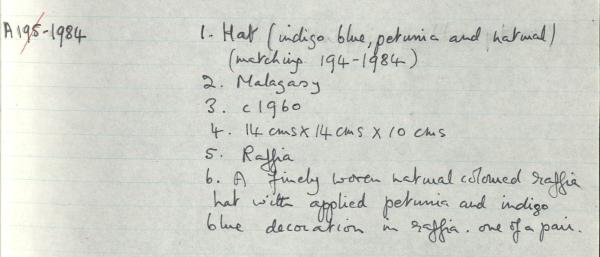 A195-1984
1. Hat (indigo blue, petunia and natural)
(matching 194-1984)
2. Malagasy
3. c1960
4. 14 cms x 14 cms x 10 cms
5. Raffia
6. A finely woven natural coloured raffia
hat with applied petunia and indigo
blue decoration in raffia. one of a pair.